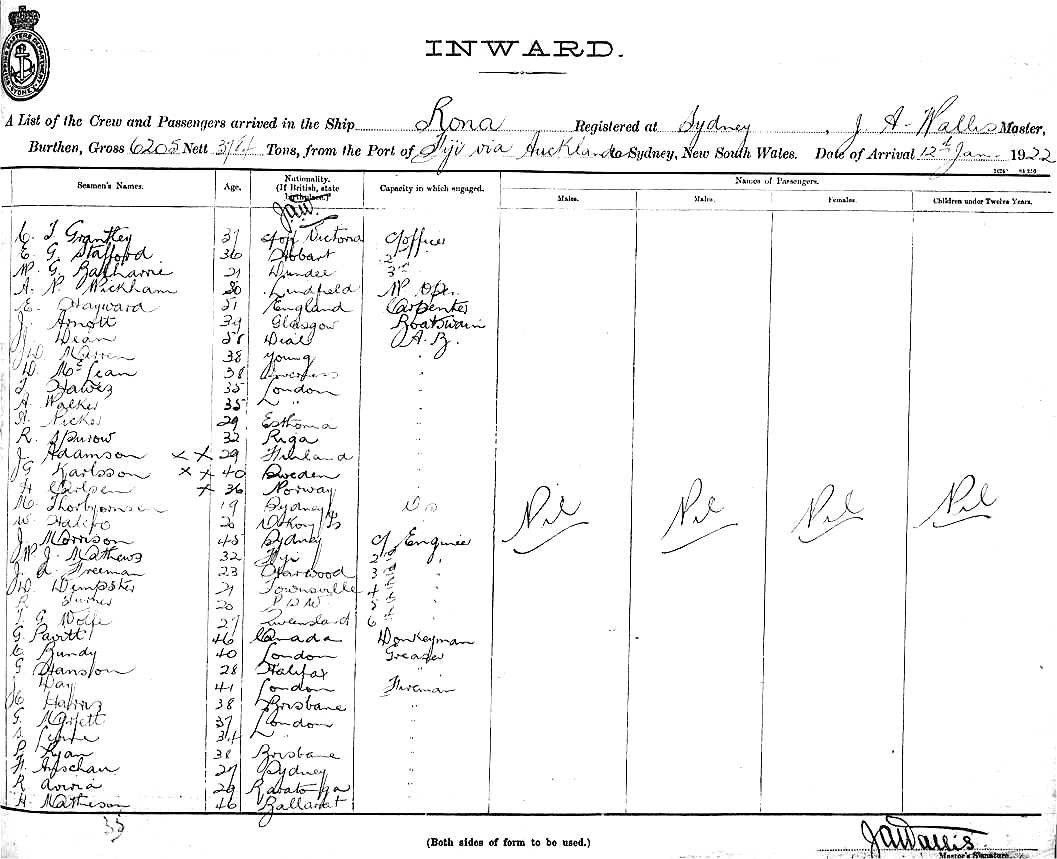 INWARD.
A List of the Crew and Passengers arrived in the Ship Rona Registered at Sydney, J A Wallis Master,
Burthen, Gross 6205 Nett Tons, from the Port of Fiji via Auckland to Sydney, New South Wales. Date of Arrival 12th Jan. 1922
Seamen's Names. Age. Nationality. (If British, state birthplace.) Capacity in which engaged. Names of Passengers.
Males. Males. Females. Children under Twelve Years.
JAW.
C. Grantley 37 Victoria C/Officer
E. G. Stafford 36 Hobart 2
W. G. 21 Dundee 3rd
A. P. Wickham 30 Lindfield W Ope.
E. Hayward 51 England Carpenter
J. Arnott 39 Glasgow Boatswain
J. Dean Deal A.B.
W. Warren 38 Young "
D. McLean 38 Inverness "
T. Hawes 35 London "
A. Walker 35 " "
29 Esthonia "
R. Spurow 32 Riga "
J. Adamson x x 29 Finland "
G Karlsson x x 40 Sweden "
Carlsen x 36 Norway "
M. Thorbjornsen 19 Sydney Do
W. Halcro 20
J. Morrison 45 Sydney C/ Enginee
W J. Mathews 32 Fiji 2nd "
J. A. Freeman 23 3rd "
W. Dempster 21 Townsville 4th "
R 20 5th "
G Wolfe 27 Queensland 6th "
G. Pavitt 46 Canada Donkeyman
C Bundy 40 London Greaser
G Hanston 28 Halifax "
J Day 41 London Fireman
H. Harris 38 Brisbane "
G. 37 London "
S. 34 "
P Ryan 38 Brisbane "
27 Sydney "
R 29 Raratonga "
H. Matheson 46 Ballarat "
Nil Nil Nil Nil
33
(Both sides of form to be used.)
JAWallis
Master's Signature.